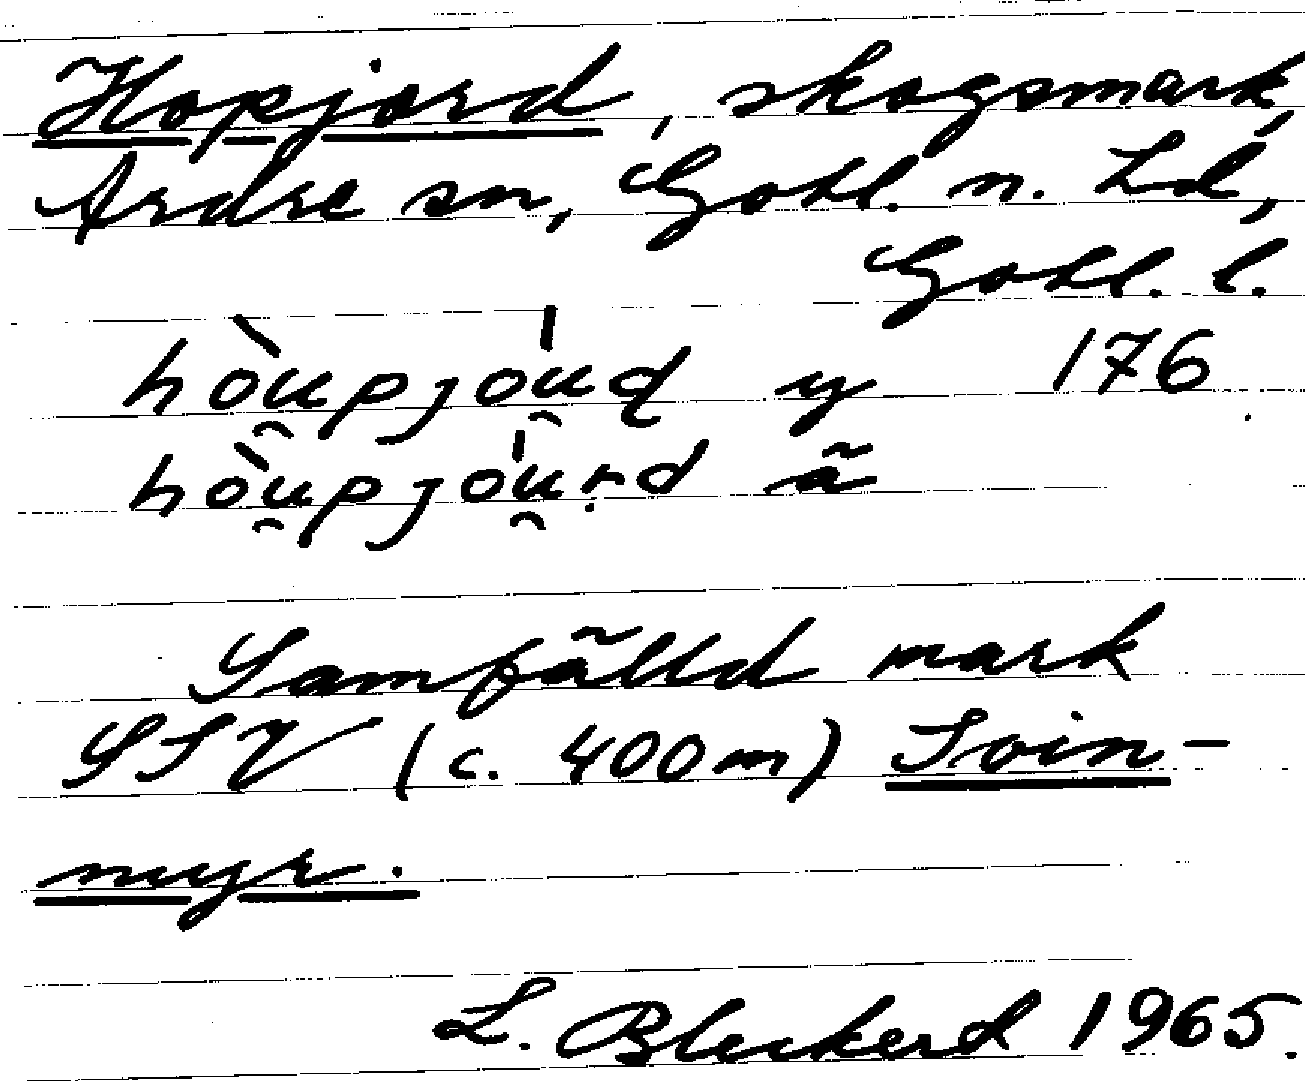 Hopjord, skogsmark,
Ardre sn, Gotl. n. hd,
Gotl. l.
hòu̯pjóu̯ɖ y 176
hòu̯pjóu̯ṛd ã
Samfälld mark
SSV (c. 400m) Soin-
myr.
L. Bleckerd 1965.